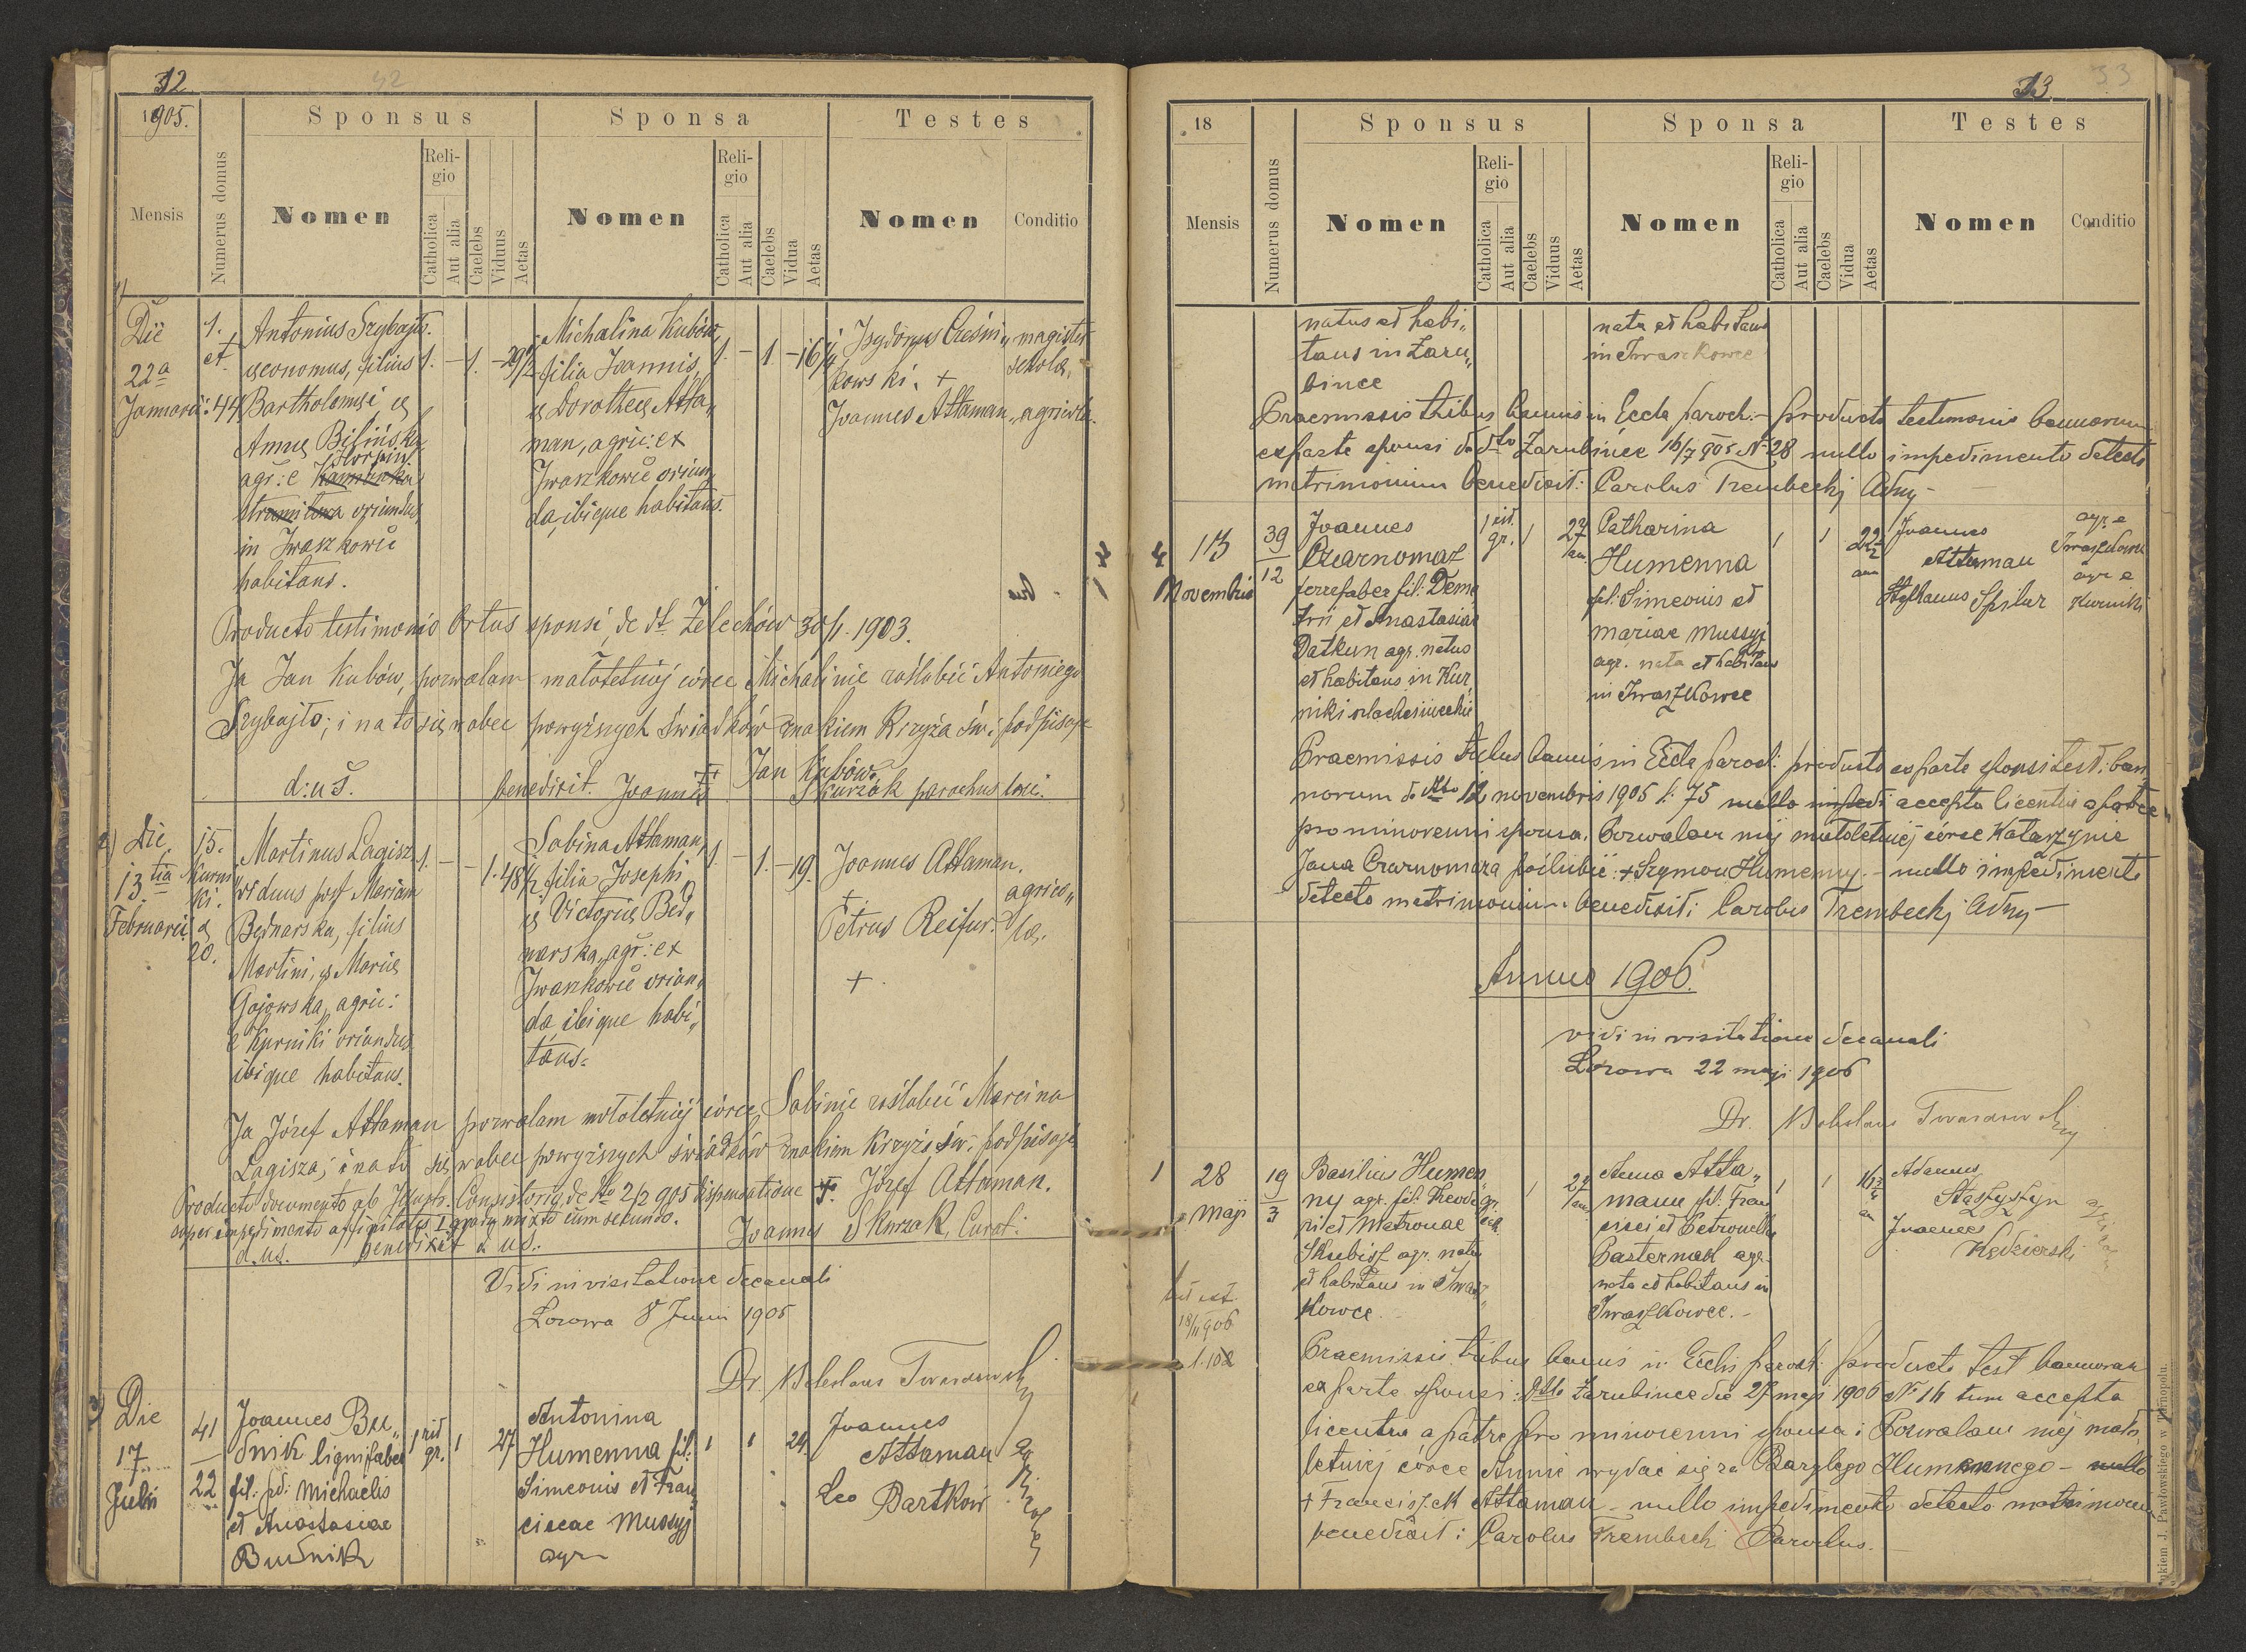 32
42
1905.
Sponsus
Sponsa
Testes
Mensis
Numerus domus
Nomen
Reli-
gio
Catholica
Aut alia
Caelebs
Viduus
Aetas
Nomen
Reli-
gio
Catholica
Aut alia
Caelebs
Vidua
Aetas
Nomen
Conditio
1)
Die
22ª
Januarii
1.
et
44.
Antonius Szybajło.
oeconomus, filius
Bartholomei &
Annae Bilińska
agr: e Horpin
Kamionka
Strumilowa oriundus,
in Iwaszkowie
habitans.
1. — 1. — 29½
Michalina Kubów
filia Joannis,
& Dorotheae Atta„
man, agric: ex
Iwaszkowie oriun„
da, ibique habitans.
1. — 1 — 16¼
Isydorus
kowski. +
Joannes Attaman
magister
scholae,
agricola.
Producto testimonio Ortus sponsi de dt Żelechów 30/1. 1903.
Ja Jan Kubów, pozwalam małoletniej córce Michalinie zaślubić Antoniego
Szybajło; i na to się wobec powyższych świadków znakiem Krzyża św: podpisuję
Jan Kubów.
d: u s.
benedixit. Joannes Skurzak parochus loci.
2)
Die
13.tia
Februarii
15.
Kurni„
ki.
&
20.
Martinus Łagisz
viduus post Mariam
Bednarska, filius
Martini, & Mariae
Gajowska, agric:
e Kurniki oriundus
ibique habitans.
1. — — 1. 48½
Sabina Attaman,
filia Josephi
& Victoriae Bed„
narska, agr: ex
Iwaszkowie oriun„
da, ibique habi„
tans.
1. — 1. — 19.
Joannes Attaman.
+
Petrus Reifur.
+
agrico„
lae.
Ja Józef Attaman pozwalam małoletniej córce Sabinie zaślubić Marcina
Łagisza; i na to się wobec powyższych świadków znakiem Krzyża św. podpisuję
Józef Attaman.
Producto documento ab Consistorio de dto 2/2 905 dispensatione
super impedimento affinitatis I gradu mixto cum secundo.
d. us. benedixit d us.
Joannes Skurzak, Curat:
Vidi in visitatione decanali
Łozowa 8 Junii 1905
Dr. Boleslaus Twardowski
3)
Die
17
Julii
41
22
Joannes Bu„
dnik lignifaber
fil: pd: Michaelis
et Anastasiae
Budnik
1 rit
gr. 1 27
Antonina
Humenna fil:
Simeonis et Fran„
ciscae Mussyj
agr
1 1 24.
Joannes
Attaman
Leo Bartków
agricolae
33
33
18
Sponsus
Sponsa
Testes
Mensis
Numerus domus
Nomen
Reli-
gio
Catholica
Aut alia
Caelebs
Viduus
Aetas
Nomen
Reli-
gio
Catholica
Aut alia
Caelebs
Vidua
Aetas
Nomen
Conditio
natus et habi„
tans in Zaru„
bince
nata et habitans
in Iwaszkowce
Praemissis tribus bannis in Eccla paroch: — producto testimonio bannorum
ex parte sponsi de dto Zarubince 16/7 905 Nº 28 nullo impedimento detecto
matrimonium benedixit: Carolus Trembecki Admr —
4
13
Novembris
39
12
Joannes
Czarnomaz
ferrifaber fil: Deme„
trii et Anastasiae
Datkun agr. natus
et habitans in Kur„
niki szlachcinieckie
1 rit.
gr. 1
Catharina
Humenna
fil: Simeonis et
Mariae Mussyj
agr. nata et habitans
in Iwaszkowce
1 1 22
Joannes
Attaman
Stephanus Spilur
agr. e
Iwaszkowce
agr e
Kurniki
Praemissis tribus bannis in Eccla paroch: producto ex parte sponsi test: ban„
norum de dto 12 novembris 1905 l: 75 accepta licentia a patre
pro minorenni sponsa. Pozwalam mej małoletniej córce Katarzynie
Jana Czarnomaza poślubić: + Szymon Humenny. — nullo impedimento
detecto matrimonium benedixit: Carolus Trembecki Admr —
Anno 1906.
vidi in visitatione decanali
Łozowa 22 maji 1906
Dr. Boleslaus Twardowski
1
28
maji
19
3
Basilius Humen„
ny agr. fil: Theodo„
ri et Matronae
Skubisz agr. natus
et habitans in Iwasz„
kowce
Anna Atta„
mann fil: Fran„
cisci et Petronellae
Pasternak agr.
nata et habitans in
Iwaszkowce. —
1 1 16¾
Adamus
Joannes
Kędzierski
18/11 906
l. 102
Praemissis tribus bannis in Ecclis paroch: producto test bannorum
ex parte sponsi: Dtto Zarubince die 27 maji 1906 Nº 16 tum accepta
licentia a patre pro minorenni sponsa: Pozwalam mej mało„
letniej córce Annie wydać się za Bazylego Humennego —
+ Franciszek Attaman — nullo impedimento detecto matrimonium
benedixit: Carolus Trembecki Parochus.
J. Pawłowskiego w Tarnopolu.